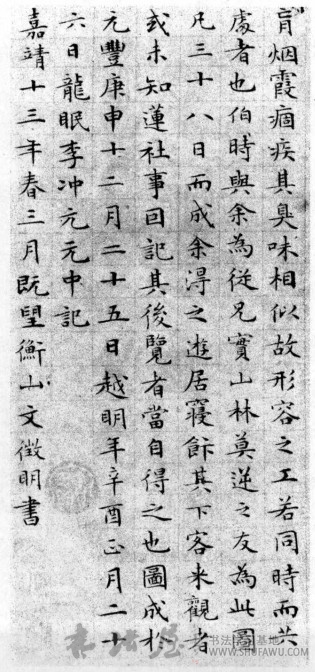 肓烟霞痼疾其臭味相似故形容之工若同時而共
處者也伯時與余為從兄實山林莫逆之友為此圖
凡三十八日而成余得之遊居寢飰其下客来觀者
或未知蓮社事囙記其後覽者當自得之也圖成於
元豐庚申十二月二十五日越明年辛酉正月二十
六日龍眠李冲元元中記
嘉靖十三年春三月既望衡山文徵明書
书法基地
WWW.SHUFAWU.COM